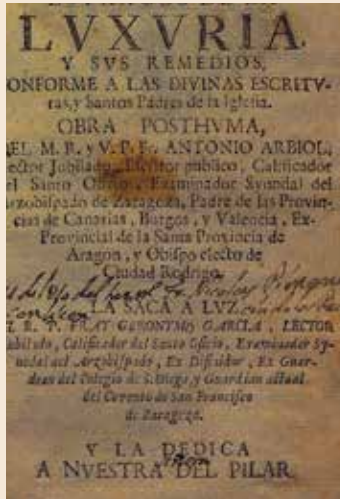 LVXVRIA,
Y SVS REMEDIOS,
ONFORME A LAS DIVINAS ESCRITV-
ras, y Santos Padres de la Iglesia.
OBRA POSTHVMA,
EL M. R. y V. P. Fr. ANTONIO ARBIOL,
ector Jubilado, Escritor publico, Calificador
el Santo Oficio, Examinador Synodal del
Arzobispado de Zaragoza, Padre de las Provin-
cias de Canarias, Burgos, y Valencia, Ex-
Provincial de la Santa Provincia de
Aragon, y Obispo electo de
Ciudad Rodrigo.
LA SACA A LUZ
EL R. P. FRAY GERONYMO GARCIA, LECTOR
abilado, Calificador del Santo Oficio, Examinador Sy-
nodal del Arzobispado, Ex Difinidor, Ex Guar-
dian del Colegio de S. Diego, y Guardian actual
del Convento de San Francisco
de Zaragoza.
Y LA DEDICA
A NVESTRA DEL PILAR